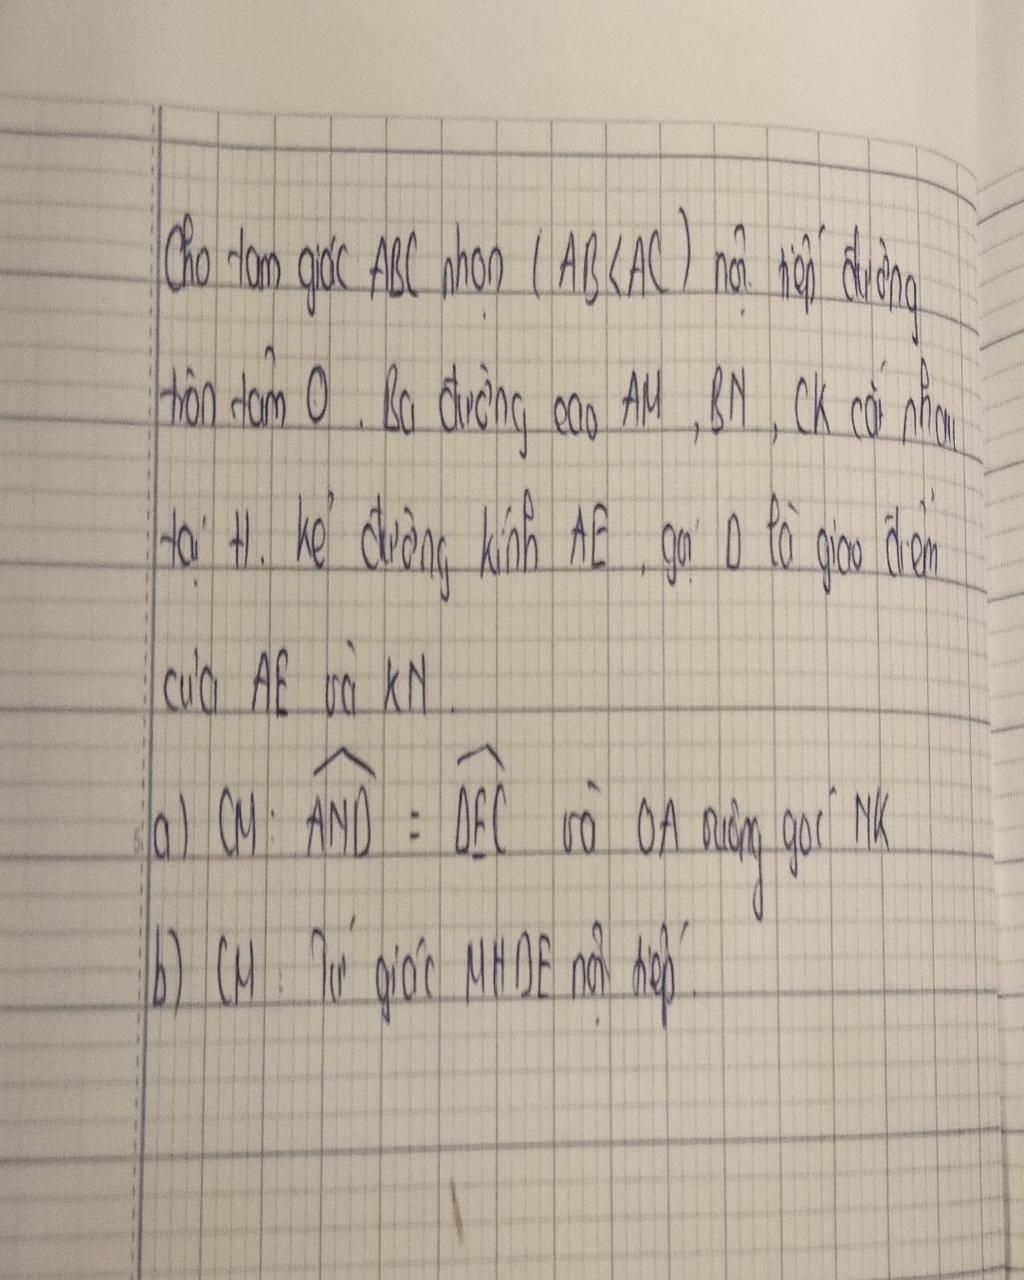 Cho tam giác ABC nhọn (AB<AC) nội tiếp đường
tròn tâm O. Ba đường cao AM, BN, CK cắt nhau
tại H. Kẻ đường kính AE, gọi D là giao điểm
của AE và KN.
a) CM: \widehat{AND} = \widehat{DEC} và OA vuông góc NK
b) CM: Tứ giác MHDE nội tiếp.